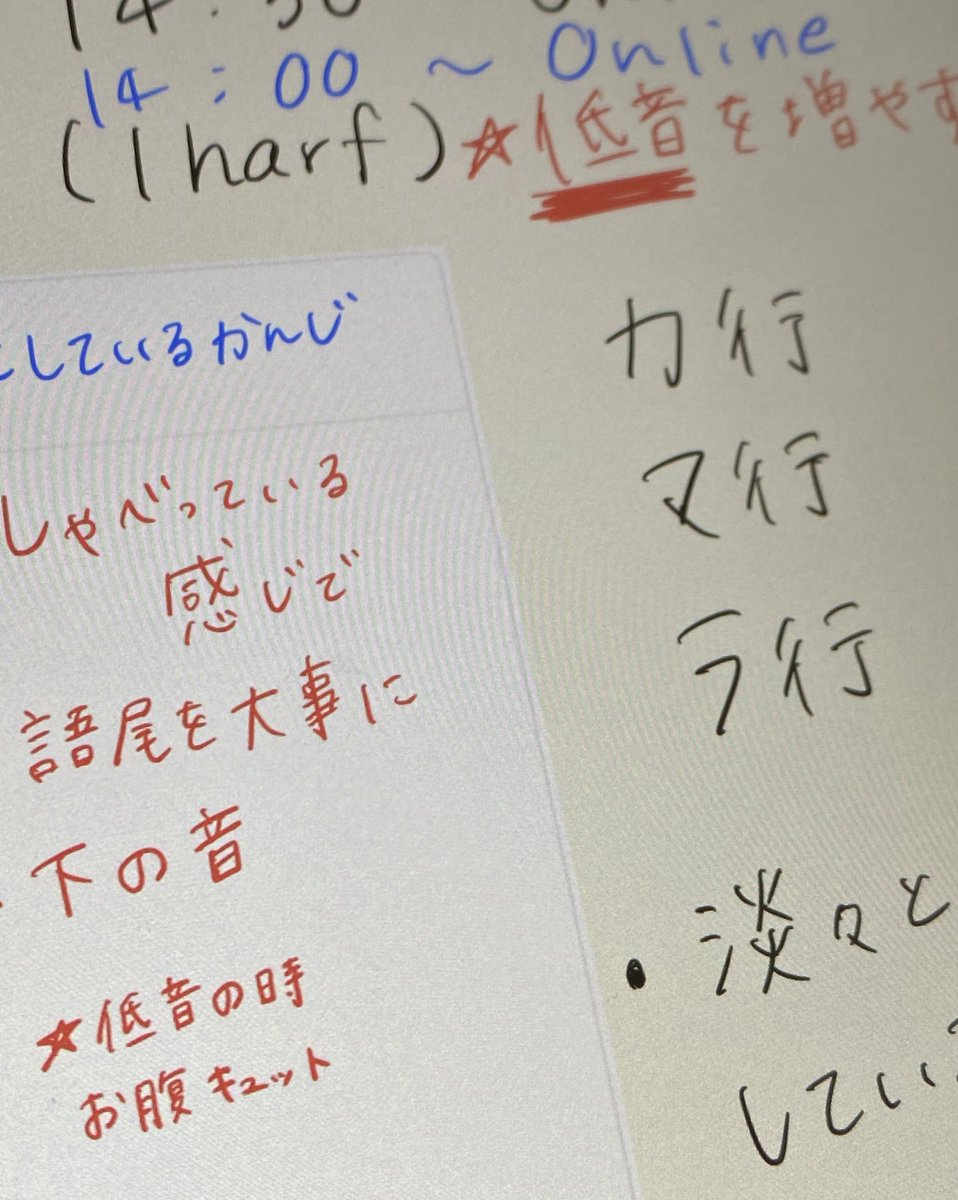 14:30
14:00 ~ Online
(1 harf) ★低音を増やす
しているかんじ
しゃべっている
感じで
語尾を大事に
下の音
★低音の時
お腹キュット
カ行
マ行
ラ行
・淡々と
してい